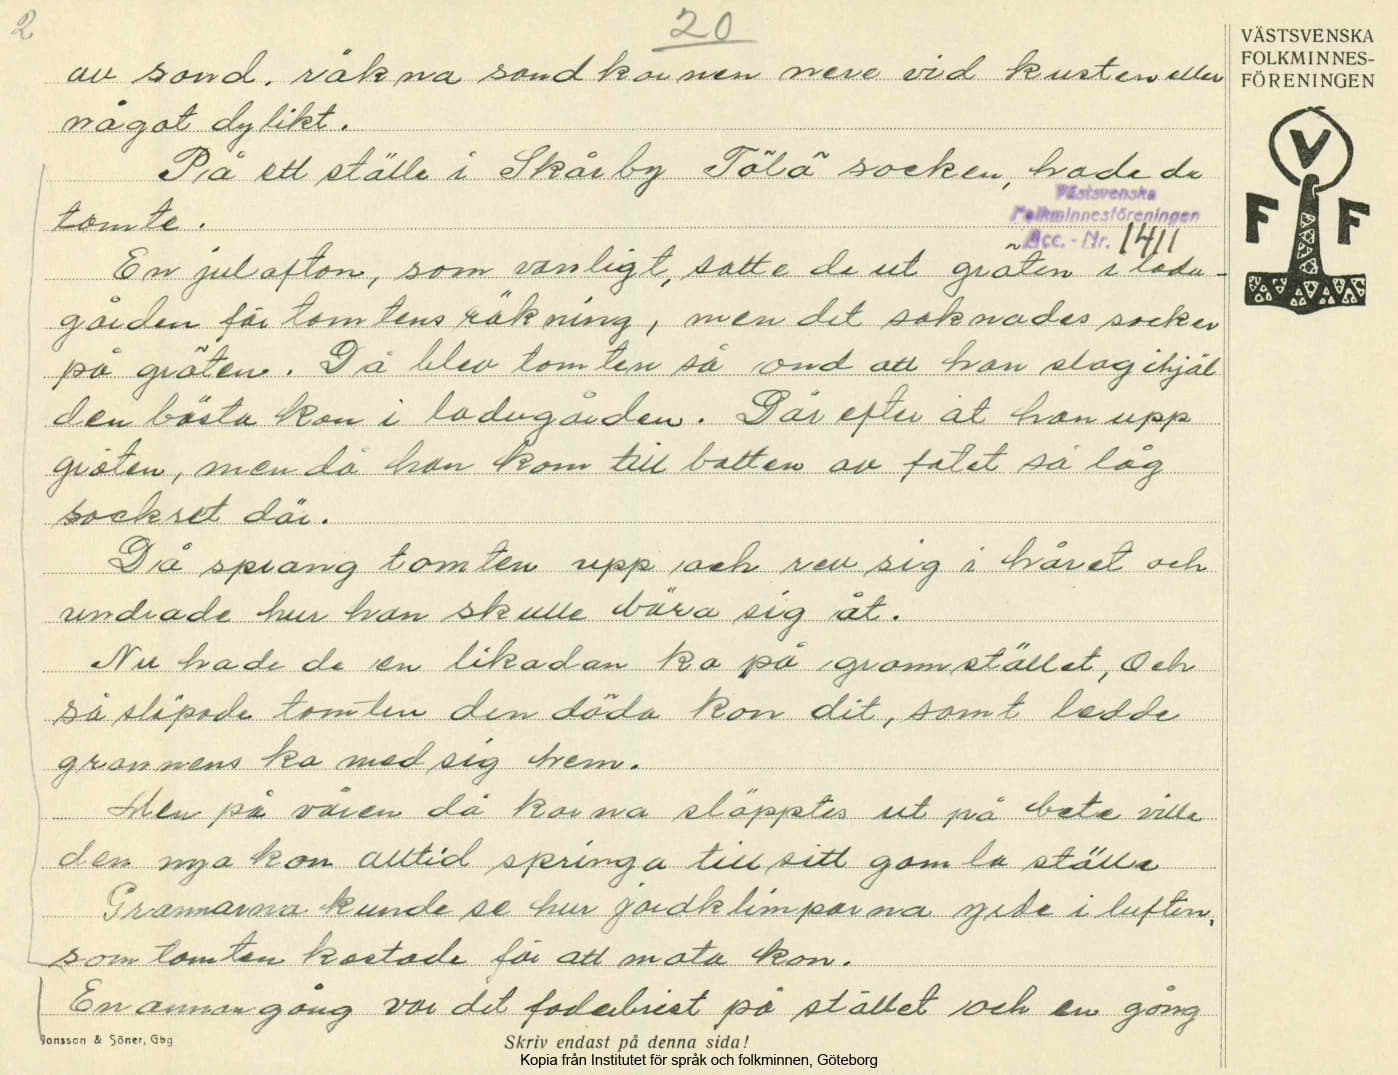 2
20
av sand. räkna sandkornen nere vid kusten eller
något dylikt.
På ett ställe i Skårby Tölö socken, hade de
tomte.
En julafton, som vanligt, satte de ut gröten i ladu-
gården för tomtens räkning, men det saknades socker
på gröten. Då blev tomten så ond att han slog ihjäl
den bästa kon i ladugården. Där efter åt han upp
gröten, men då han kom till botten av fatet så låg
sockret där.
Då sprang tomten upp och rev sig i håret och
undrade hur han skulle bära sig åt.
Nu hade de en likadan ko på grannstället, Och
så släpade tomten den döda kon dit, samt ledde
grannens ko med sig hem.
Men på våren då korna släpptes ut på bete ville
den nya kon alltid springa till sitt gamla ställe
Grannarna kunde se hur jordklimparna yrde i luften,
som tomten kastade för att mota kon.
En annan gång var det foderbrist på stället och en gång
VÄSTSVENSKA
FOLKMINNES-
FÖRENINGEN
V
F F
Västsvenska
Folkminnesföreningen
Acc. - Nr. 1411
Jonsson & Söner, Gbg
Skriv endast på denna sida!
Kopia från Institutet för språk och folkminnen, Göteborg